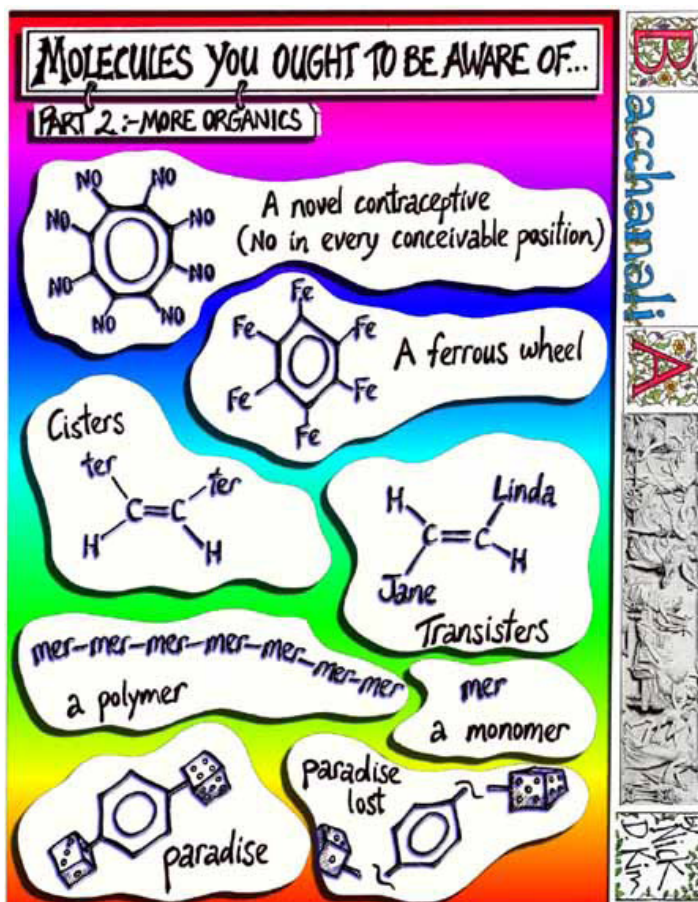 MOLECULES YOU OUGHT TO BE AWARE OF...
PART 2:-MORE ORGANICS
NO NO
NO NO
NO NO
NO NO
A novel contraceptive
(NO in every conceivable position)
Fe
Fe Fe
Fe Fe
Fe
A ferrous wheel
Cisters
ter ter
C=C
H H
H Linda
C=C
Jane H
Transisters
mer-mer-mer-mer-mer-mer-mer
a polymer
mer
a monomer
paradise
paradise
lost
Bacchanali
A
NICK
D Kim